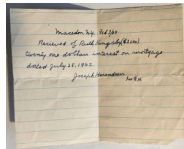 Macedon N.Y. Feb
Received of Ruth
twenty one dollars interest on mortgage
dated July 28, 1942
Joseph